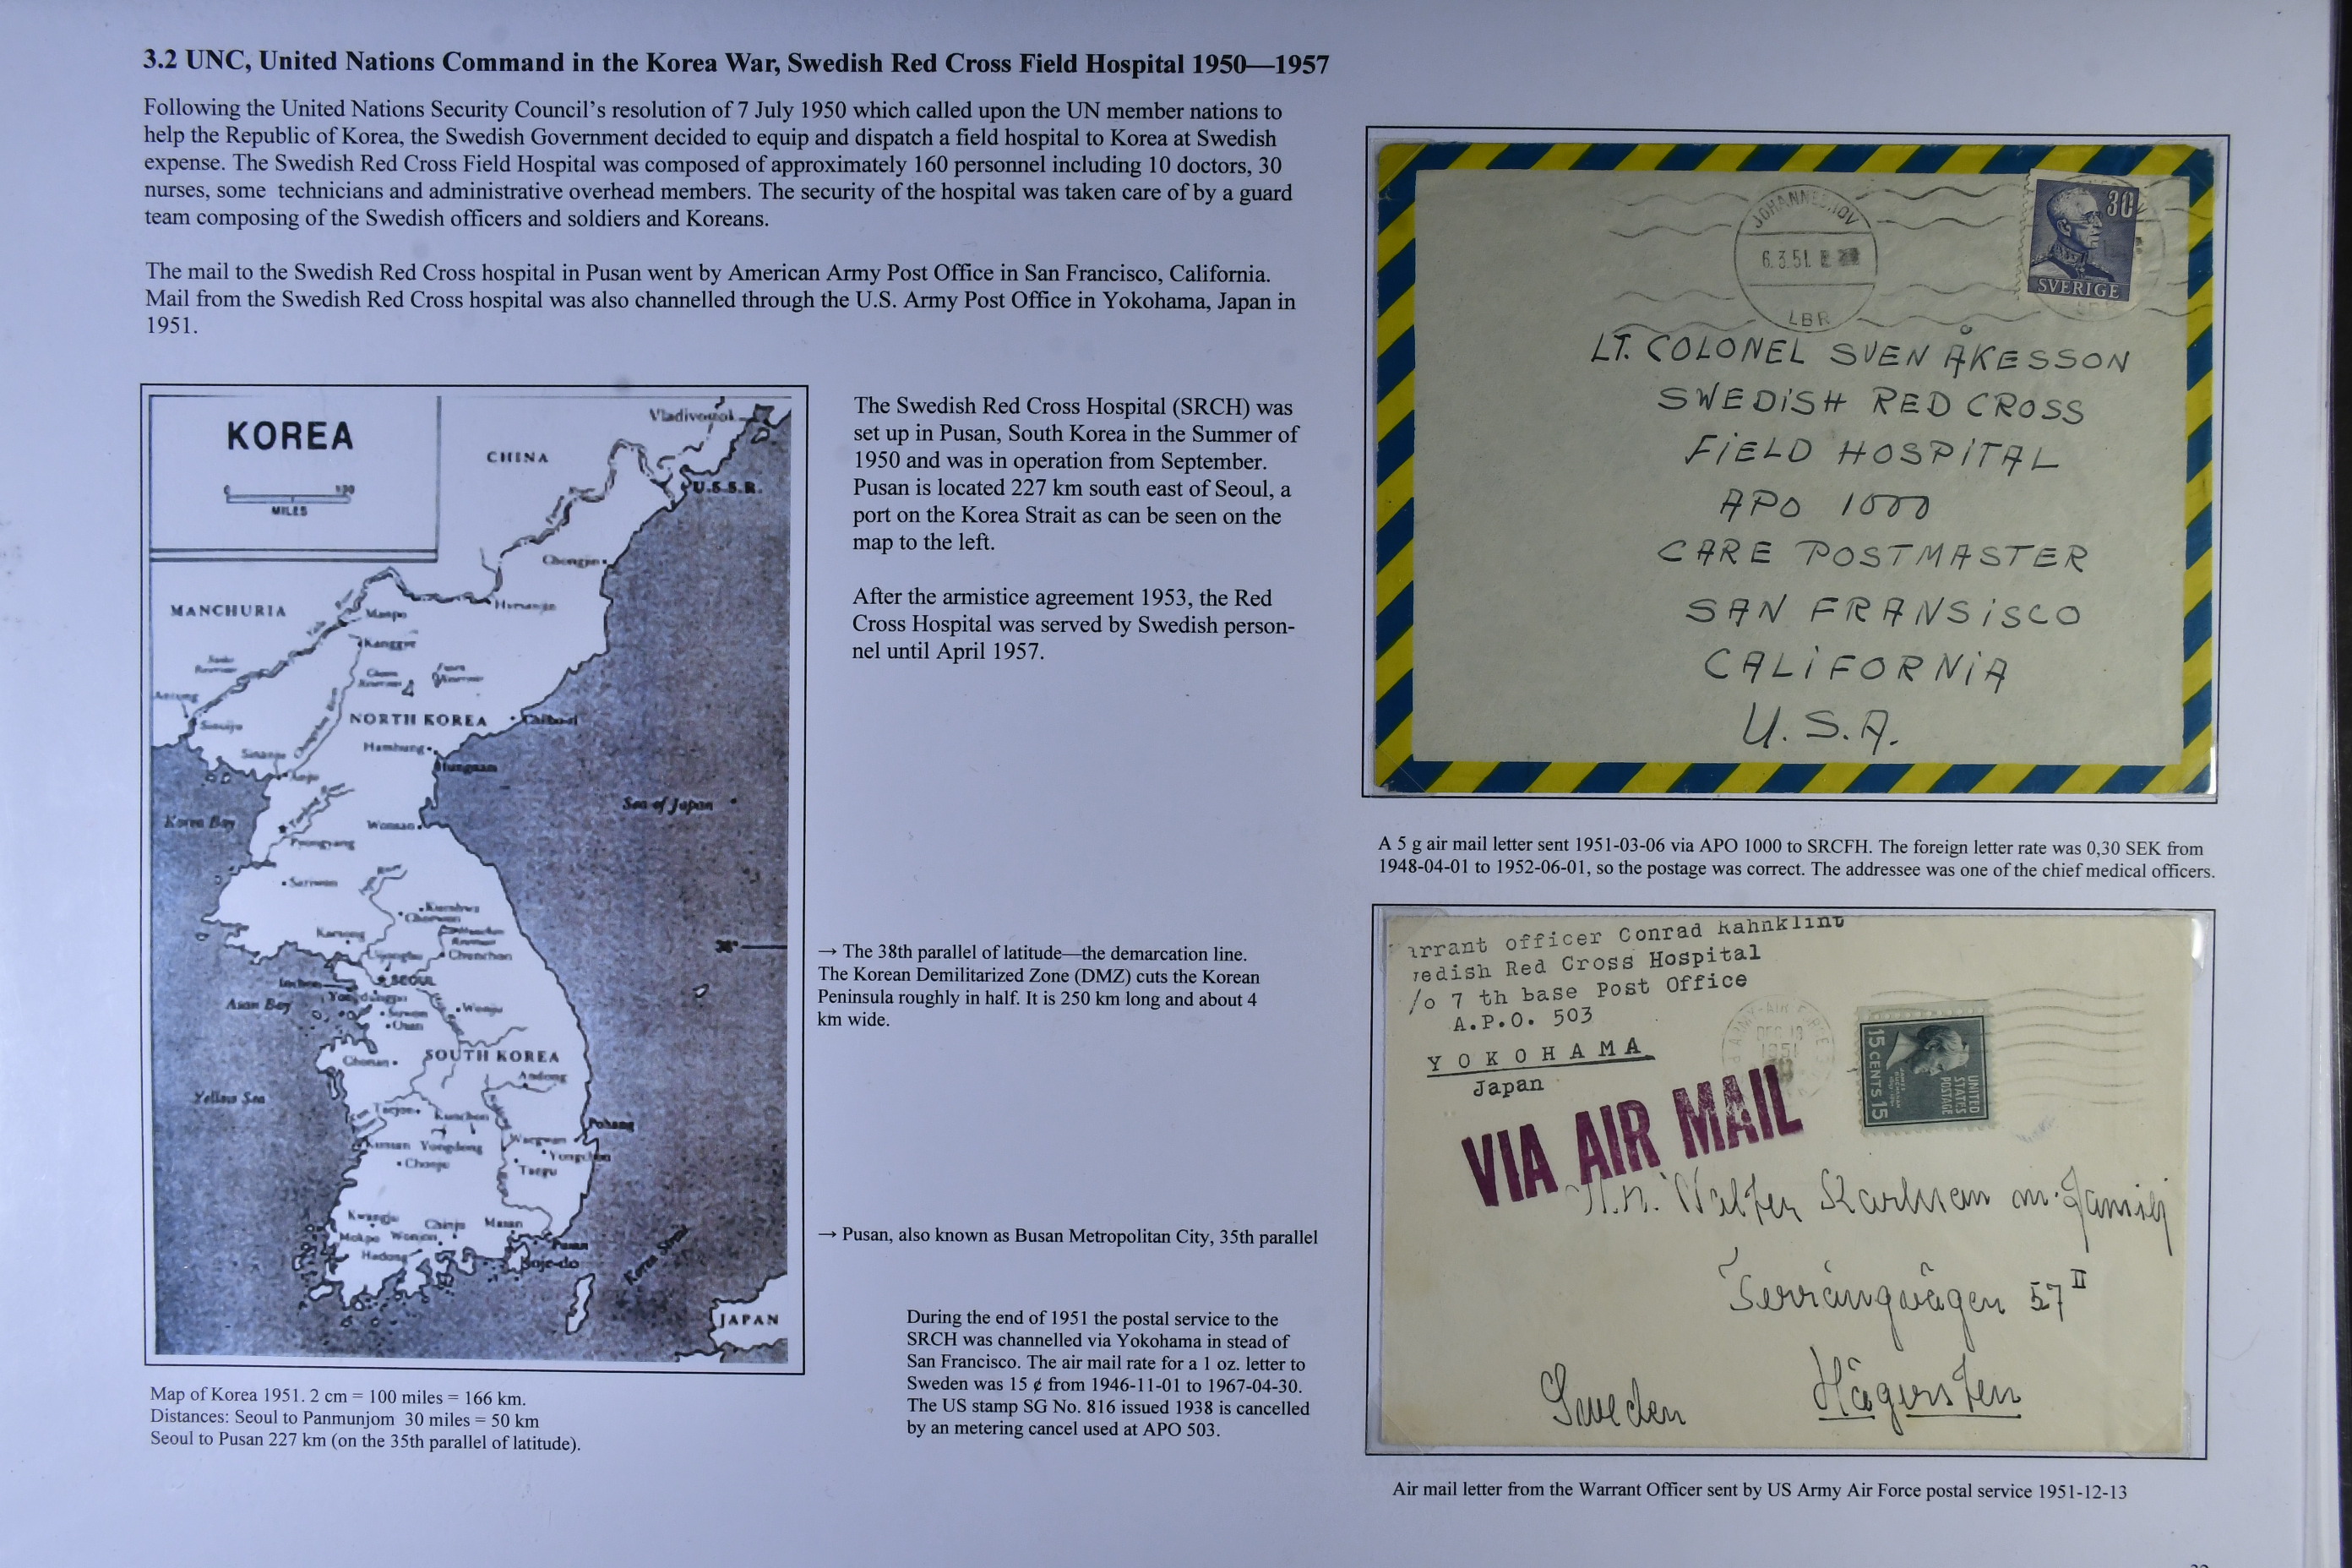 3.2 UNC, United Nations Command in the Korea War, Swedish Red Cross Field Hospital 1950—1957
Following the United Nations Security Council's resolution of 7 July 1950 which called upon the UN member nations to
help the Republic of Korea, the Swedish Government decided to equip and dispatch a field hospital to Korea at Swedish
expense. The Swedish Red Cross Field Hospital was composed of approximately 160 personnel including 10 doctors, 30
nurses, some technicians and administrative overhead members. The security of the hospital was taken care of by a guard
team composing of the Swedish officers and soldiers and Koreans.
The mail to the Swedish Red Cross hospital in Pusan went by American Army Post Office in San Francisco, California.
Mail from the Swedish Red Cross hospital was also channelled through the U.S. Army Post Office in Yokohama, Japan in
1951.
KOREA
MILES
Vladivostok
CHINA
U.S.S.R.
Chongjin
MANCHURIA
Manpo
Kanggye
NORTH KOREA
Hamhung
Hungnam
Sea of Japan
Korea Bay
Wonsan
Pyongyang
Sariwon
Chunchon
SEOUL
Asan Bay
Wonju
Suwon
Osan
Chonan
SOUTH KOREA
Andong
Yellow Sea
Taejon
Kunchon
Pohang
Kunsan
Yongdong
Waegwan
Yongchon
Chonju
Taegu
Kwangju
Chinju
Masan
Mokpo
Hadong
Pusan
Koje-do
Korea Strait
JAPAN
Map of Korea 1951. 2 cm = 100 miles = 166 km.
Distances: Seoul to Panmunjom 30 miles = 50 km
Seoul to Pusan 227 km (on the 35th parallel of latitude).
The Swedish Red Cross Hospital (SRCH) was
set up in Pusan, South Korea in the Summer of
1950 and was in operation from September.
Pusan is located 227 km south east of Seoul, a
port on the Korea Strait as can be seen on the
map to the left.
After the armistice agreement 1953, the Red
Cross Hospital was served by Swedish person-
nel until April 1957.
→ The 38th parallel of latitude—the demarcation line.
The Korean Demilitarized Zone (DMZ) cuts the Korean
Peninsula roughly in half. It is 250 km long and about 4
km wide.
→ Pusan, also known as Busan Metropolitan City, 35th parallel
During the end of 1951 the postal service to the
SRCH was channelled via Yokohama in stead of
San Francisco. The air mail rate for a 1 oz. letter to
Sweden was 15 ¢ from 1946-11-01 to 1967-04-30.
The US stamp SG No. 816 issued 1938 is cancelled
by an metering cancel used at APO 503.
JOHANNESHOV
6.3.51.
LBR
30
SVERIGE
LT. COLONEL SVEN ÅKESSON
SWEDISH RED CROSS
FIELD HOSPITAL
APO 1000
CARE POSTMASTER
SAN FRANSISCO
CALIFORNIA
U.S.A.
A 5 g air mail letter sent 1951-03-06 via APO 1000 to SRCFH. The foreign letter rate was 0,30 SEK from
1948-04-01 to 1952-06-01, so the postage was correct. The addressee was one of the chief medical officers.
arrant officer Conrad Rahnklint
wedish Red Cross Hospital
/o 7 th base Post Office
A.P.O. 503
YOKOHAMA
Japan
DEC 13
1951
UNITED
STATES
POSTAGE
15 CENTS 15
VIA AIR MAIL
Walter Karlman m. familj
Terrängvägen 57 II
Hägersten
Sweden
Air mail letter from the Warrant Officer sent by US Army Air Force postal service 1951-12-13